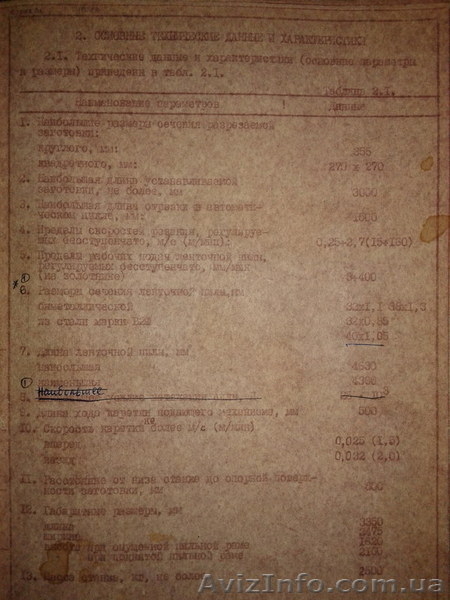 2. ОСНОВНЫЕ ТЕХНИЧЕСКИЕ ДАННЫЕ И ХАРАКТЕРИСТИКИ
2.1. Технические данные и характеристики (основные параметры
и размеры) приведены в табл. 2.1.
Таблица 2.1.
Наименование параметров Данные
1. Наибольшие размеры сечения разрезаемой
заготовки:
круглого, мм: 355
квадратного, мм: 270 х 270
2. Наибольшая длина устанавливаемой
заготовки, не более, мм 3000
3. Наибольшая длина отрезки в автомати-
ческом цикле, мм: 1600
4. Пределы скоростей резания, регулируе-
мая бесступенчато, м/с (м/мин): 0,25÷2,7(15÷160)
5. Пределы рабочих подач ленточной пилы,
регулируемая бесступенчато, мм/мин
(на холостых) 5÷400
6. Размеры сечения ленточной пилы, мм
биметаллической
из стали марки 32х0,85
40х1,05
7. Длина ленточной пилы, мм
наибольшая 4530
Наибольшее
8.
9. Длина хода каретки подающего механизма, мм 500
10. Скорость каретки не более м/с (м/мин)
вперед 0,025 (1,5)
назад 0,032 (2,0)
11. Расстояние от низа станины до опорной поверх-
ности заготовки, мм
12. Габаритные размеры, мм
длина 3350
ширина
высота при опущенной пильной раме
при поднятой пильной раме 2100
13. Масса станка, кг, не более 2800
AvizInfo.com.ua